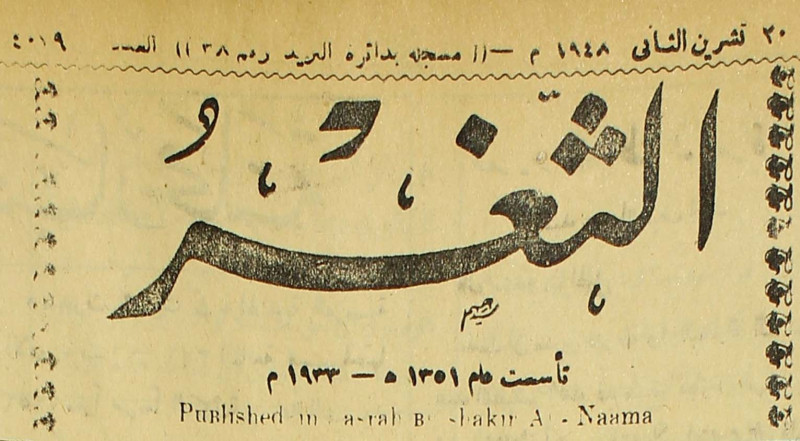 ٢٠ تشرين الثاني ١٩٤٨ م —(( مسجله بدائرة البريد رقم ٣٨ )) العدد ٤٠١٩
الثَّغْرُ
تأسست عام ١٣٥١ ه — ١٩٣٣ م
Published in Basrah By Shakir Al-Naama